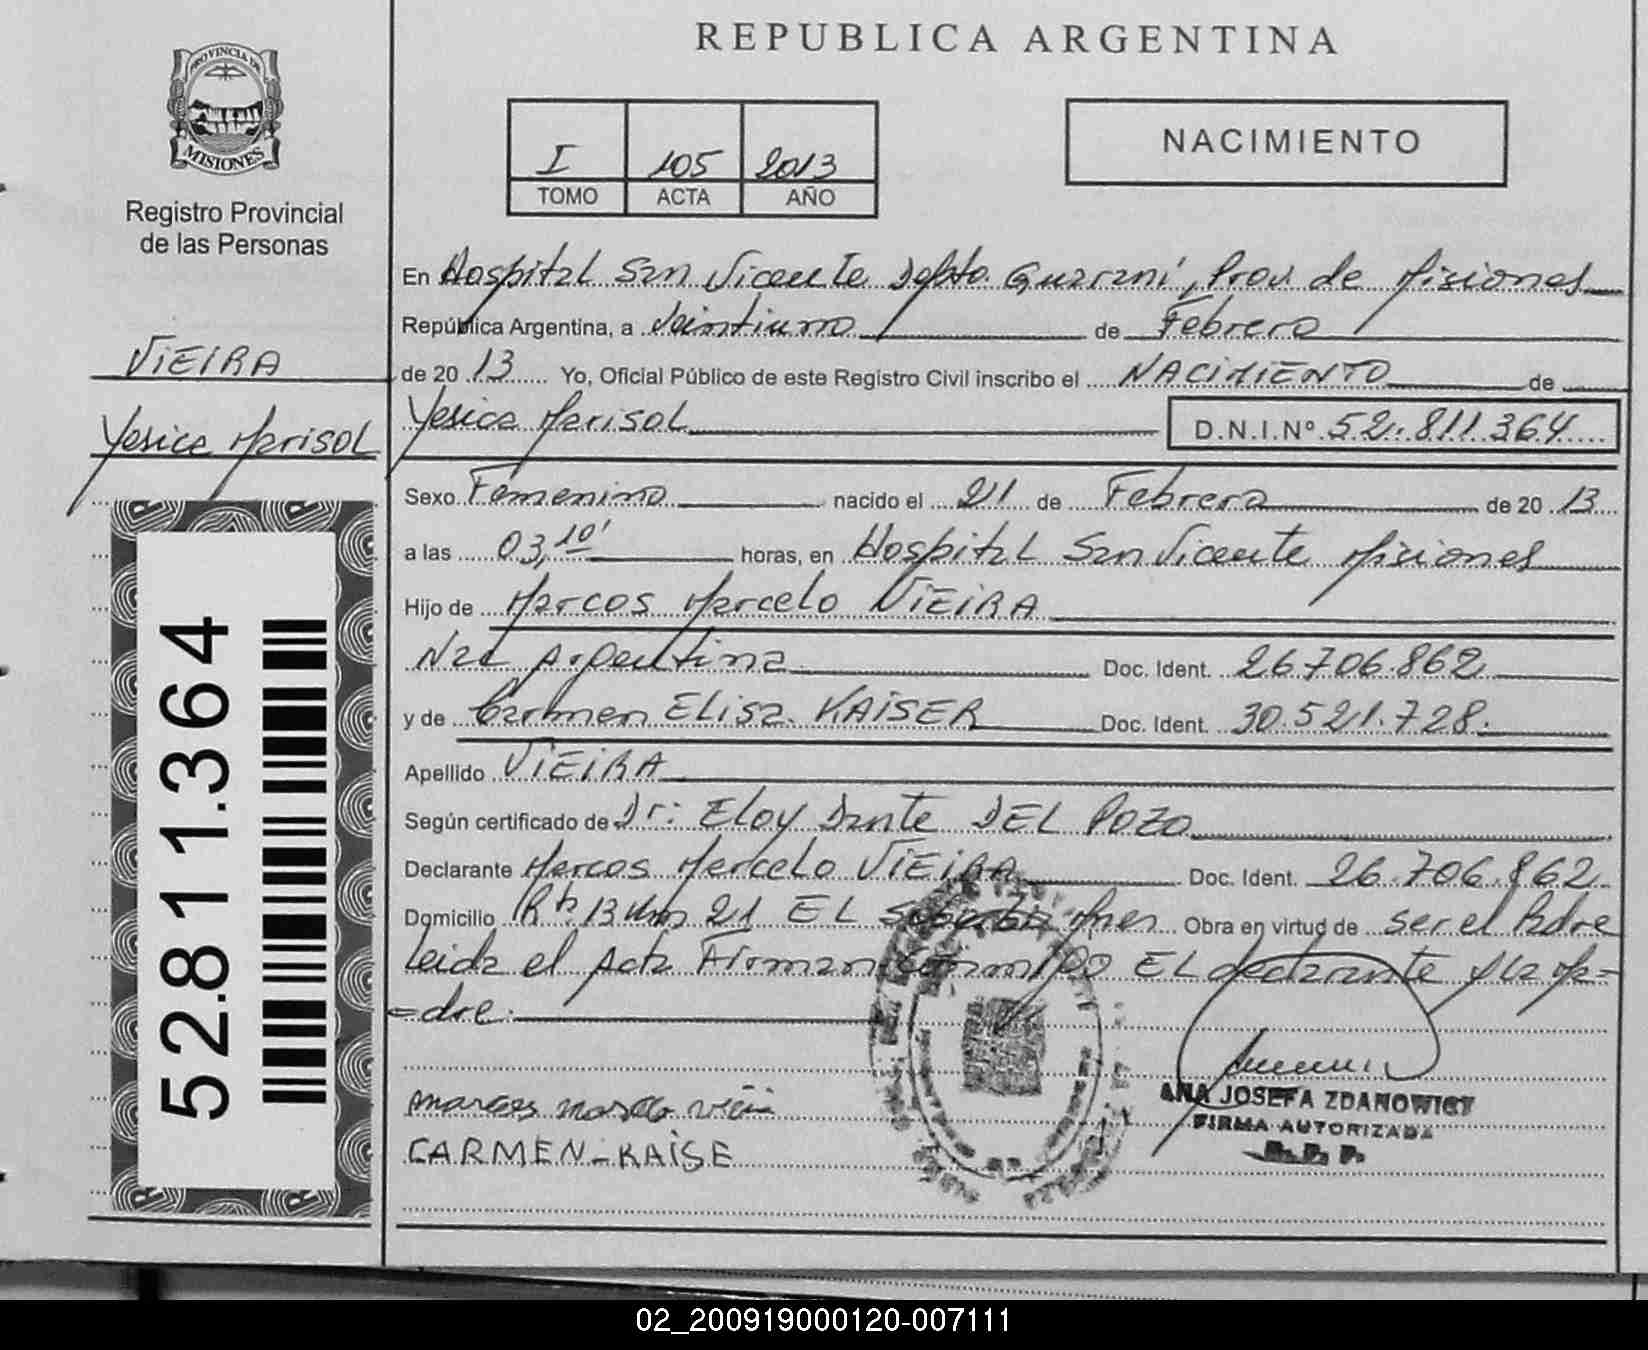 PROVINCIA DE
MISIONES
Registro Provincial
de las Personas
VIEIRA
Yesica Marisol
52.811.364
REPUBLICA ARGENTINA
I 105 2013
TOMO ACTA AÑO
NACIMIENTO
En Hospital San Vicente Depto. Guaraní, Prov. de Misiones
República Argentina, a Veintiuno de Febrero
de 20 13 Yo, Oficial Público de este Registro Civil inscribo el NACIMIENTO de
Yesica Marisol D.N.I.Nº 52.811.364
Sexo Femenino nacido el 21 de Febrero de 20 13
a las 03,10' horas, en Hospital San Vicente Misiones
Hijo de Marcos Marcelo VIEIRA
Nac Argentina Doc. Ident. 26.706.862
y de Carmen ELisa KAISER Doc. Ident. 30.521.728.
Apellido VIEIRA
Según certificado de Dr: Eloy Dante DEL POZO
Declarante Marcos Marcelo VIEIRA Doc. Ident. 26.706.862
Domicilio 13 21 EL Obra en virtud de ser el Padre
Leida el Acta Firman EL declarante y la Ma=
=dre.
CARMEN-KAISE
ANA JOSEFA ZDANOWICZ
FIRMA AUTORIZADA
R. P. P.
02_200919000120-007111